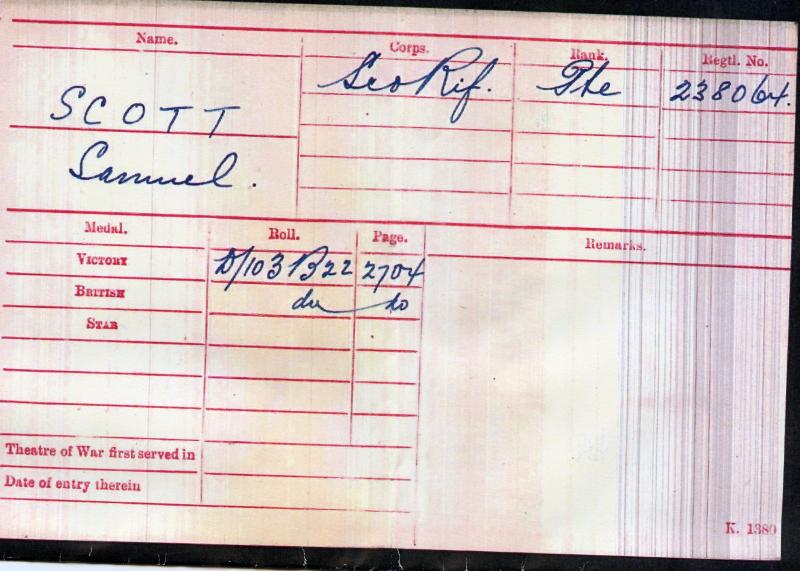 Name. Corps. Rank. Regtl. No.
SCOTT Sco Rif. Pte 238064.
Samuel.
Medal. Roll. Page. Remarks.
VICTORY D/103 B22 2704
BRITISH do do
STAR
Theatre of War first served in
Date of entry therein
K. 1380